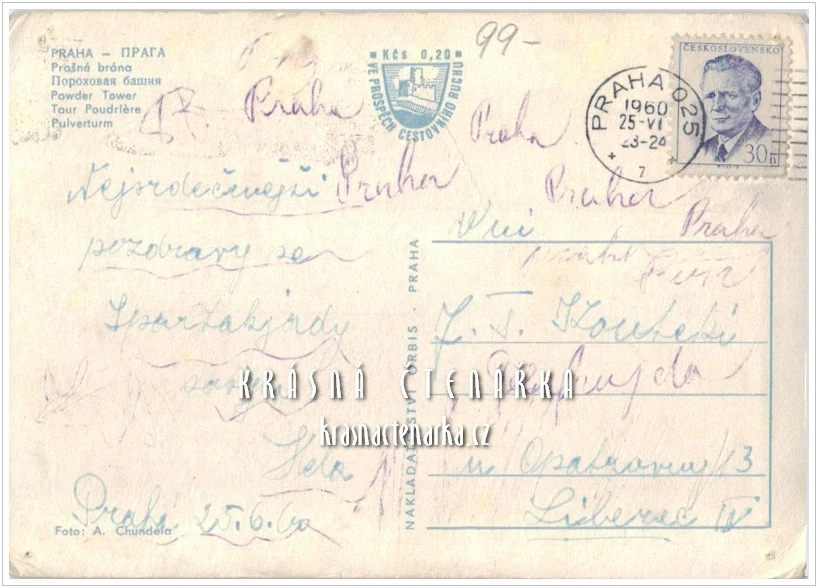 PRAHA – ПРАГА
Prašná brána
Пороховая башня
Powder Tower
Tour Poudrière
Pulverturm
Kčs 0,20
VE PROSPĚCH CESTOVNÍHO RUCHU
99-
ČESKOSLOVENSKO
30h
PRAHA 025
1960
25-VI
23-24
7
Praha
Praha
Praha
Praha
Praha
Nejsrdečnější
pozdravy ze
Spartakjády
Praha 25.6.60
NAKLADATELSTVÍ ORBIS - PRAHA
J. T.
u Opatrovny 13
Liberec IV
KRÁSNÁ ČTENÁŘKA
krasnactenarka.cz
Foto: A. Chundela